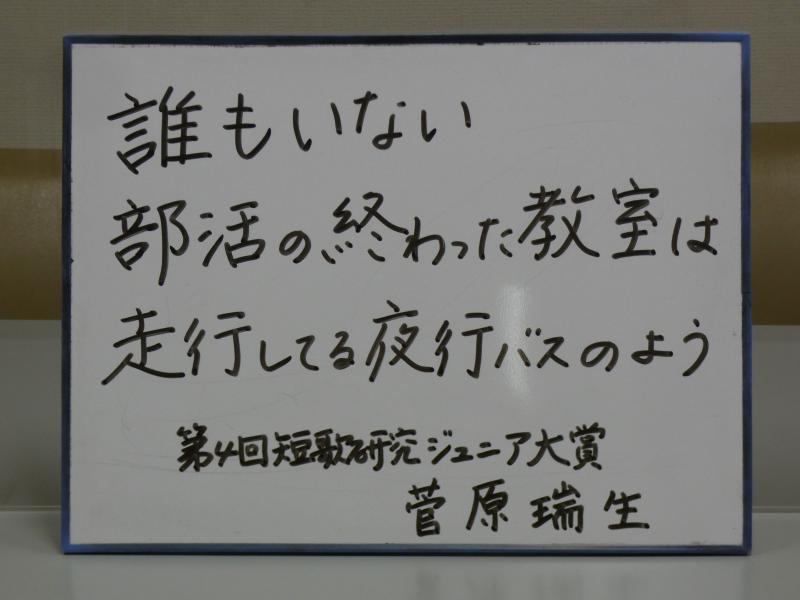 誰もいない
部活の終わった教室は
走行してる夜行バスのよう
第4回短歌研究ジュニア大賞
菅原瑞生